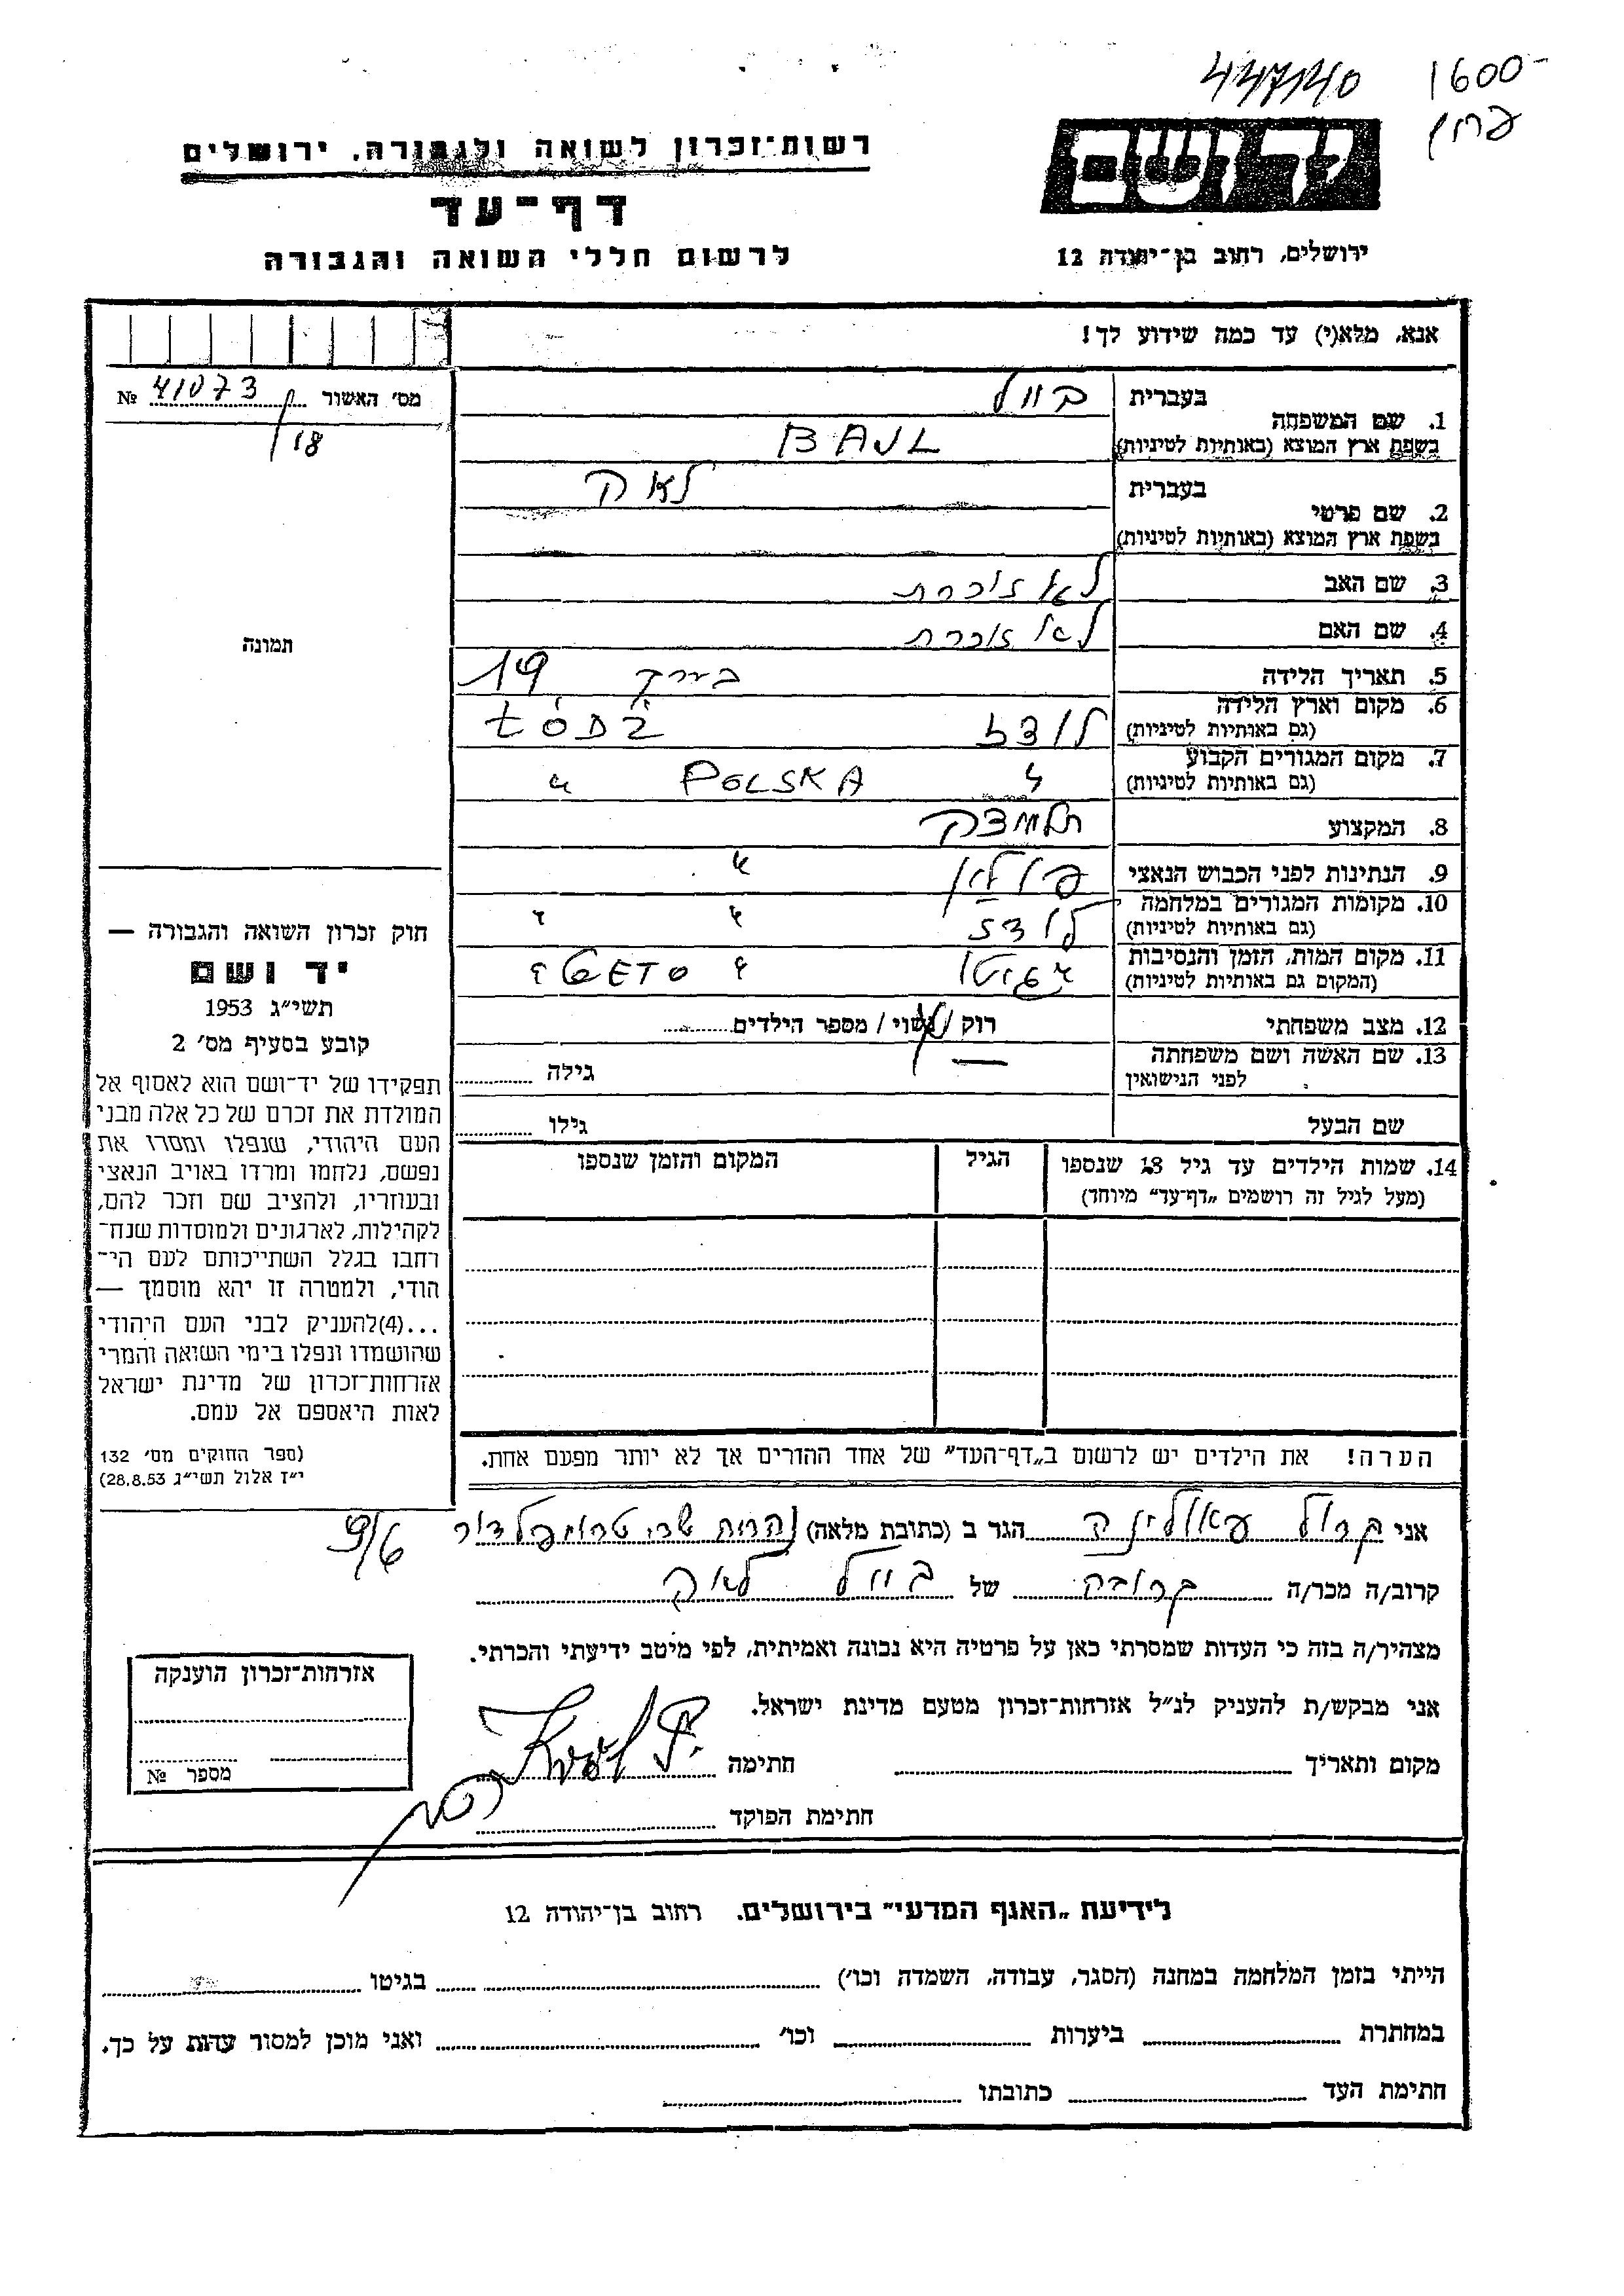 447/40 1600-
רשות־זכרון לשואה ולגבורה, ירושלים
יד ושם
דף־עד
לרשום חללי השואה והגבורה
ירושלים, רחוב בן־יהודה 12
אנא, מלא(י) עד כמה שידוע לך!
מס' האשור 41073 №
18
1. שם המשפחה בעברית
בשפת ארץ המוצא (באותיות לטיניות) BAJL
2. שם פרטי בעברית לאה
בשפת ארץ המוצא (באותיות לטיניות)
3. שם האב לא זוכרת
4. שם האם לא זוכרת
5. תאריך הלידה בערך 19
6. מקום וארץ הלידה לודז
(גם באותיות לטיניות)
7. מקום המגורים הקבוע POLSKA
(גם באותיות לטיניות)
8. המקצוע
9. הנתינות לפני הכבוש הנאצי פולין
10. מקומות המגורים במלחמה לודז
(גם באותיות לטיניות)
11. מקום המות, הזמן והנסיבות
(המקום גם באותיות לטיניות)
12. מצב משפחתי רוק / נשוי / מספר הילדים
13. שם האשה ושם משפחתה — גילה
לפני הנישואין
שם הבעל גילו
14. שמות הילדים עד גיל 18 שנספו הגיל המקום והזמן שנספו
(מעל לגיל זה רושמים „דף־עד" מיוחד)
הערה! את הילדים יש לרשום ב„דף־העד" של אחד ההורים אך לא יותר מפעם אחת.
תמונה
חוק זכרון השואה והגבורה —
יד ושם
תשי״ג 1953
קובע בסעיף מס' 2
תפקידו של יד־ושם הוא לאסוף אל
המולדת את זכרם של כל אלה מבני
העם היהודי, שנפלו ומסרו את
נפשם, נלחמו ומרדו באויב הנאצי
ובעוזריו, ולהציב שם וזכר להם,
לקהילות, לארגונים ולמוסדות שנח־
רחבו בגלל השתייכותם לעם הי־
הודי, ולמטרה זו יהא מוסמך —
...(4)להעניק לבני העם היהודי
שהושמדו ונפלו בימי השואה והמרי
אזרחות־זכרון של מדינת ישראל
לאות היאספם אל עמם.
(ספר החוקים מס' 132
י״ז אלול תשי״ג 28.8.53)
אני הגר ב (כתובת מלאה)
קרוב/ה מכר/ה קרובה של לאה
מצהיר/ה בזה כי העדות שמסרתי כאן על פרטיה היא נכונה ואמיתית, לפי מיטב ידיעתי והכרתי.
אני מבקש/ת להעניק לנ״ל אזרחות־זכרון מטעם מדינת ישראל.
מקום ותאריך חתימה
חתימת הפוקד
אזרחות־זכרון הוענקה
מספר №
לידיעת „האגף המדעי" בירושלים. רחוב בן־יהודה 12
הייתי בזמן המלחמה במחנה (הסגר, עבודה, השמדה וכו') בגיטו
במחתרת ביערות וכו' ואני מוכן למסור עדות על כך.
חתימת העד כתובתו